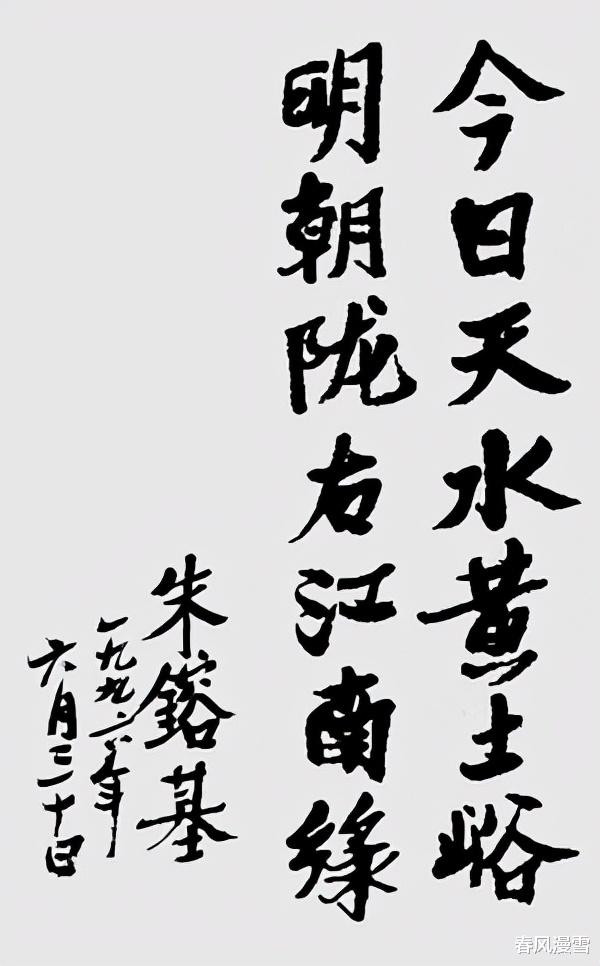 今日天水黄土峪
明朝陇右江南綠
朱鎔基
一九九六年
六月三十日
春风漫雪